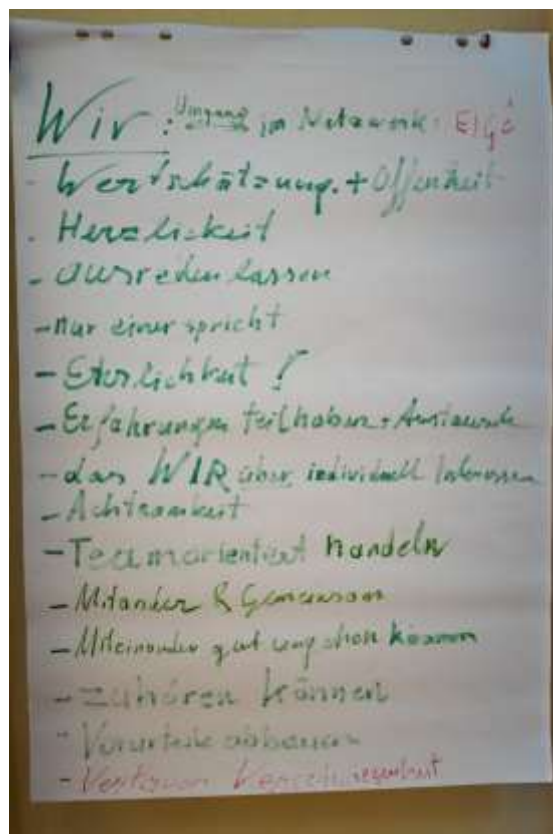 Wir: Umgang im Netzwerk:
- Wertschätzung + Offenheit
- Herzlickeit
- ausreden lassen
- nur einer spricht
- Ehrlichkeit!
- Erfahrungen teilhaben + Austausch
- das WIR über individuell Interessen
- Achtsamkeit
- Teamorientiert handeln
- Mitander & Gemeinsam
- Miteinander gut umgehen können
- zuhören können
- Vorurteile abbauen
- Vertrauen Verschwiegenheit